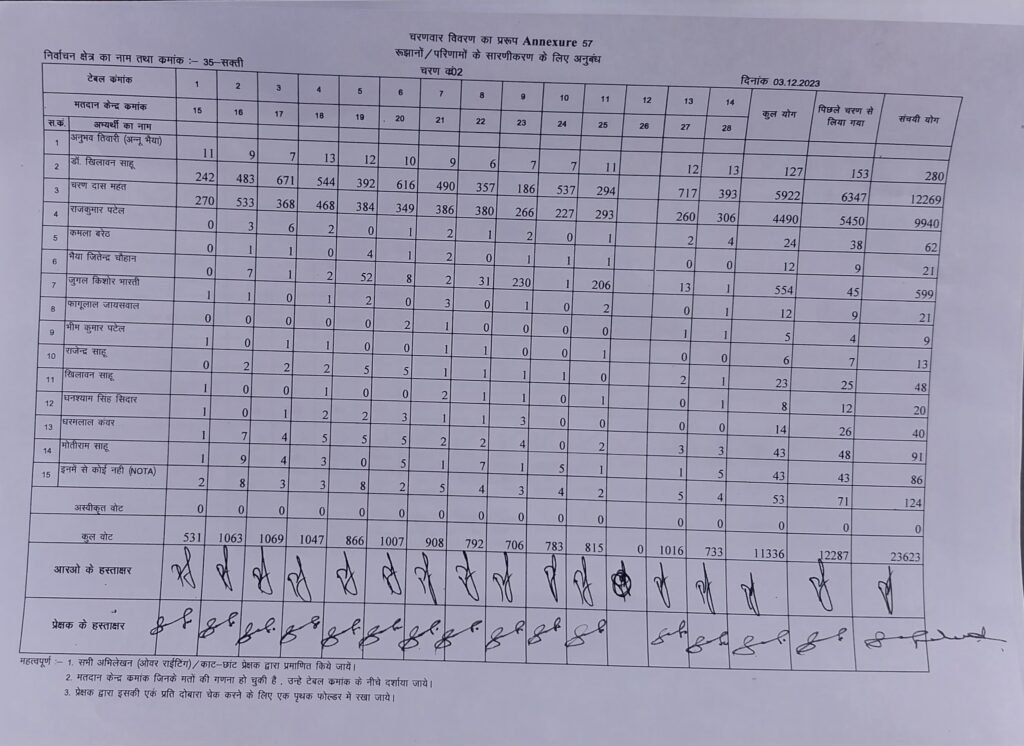 चरणवार विवरण का प्ररूप Annexure 57
रूझानों/परिणामों के सारणीकरण के लिए अनुबंध
निर्वाचन क्षेत्र का नाम तथा कमांक :– 35–सक्ती
चरण कं02
दिनांक 03.12.2023
टेबल कंमाक 1 2 3 4 5 6 7 8 9 10 11 12 13 14 कुल योग पिछले चरण से लिया गया संचयी योग
मतदान केन्द्र कमांक 15 16 17 18 19 20 21 22 23 24 25 26 27 28
स.कं. अभ्यर्थी का नाम
1 अनुभव तिवारी (अन्नू भैया) 11 9 7 13 12 10 9 6 7 7 11 12 13 127 153 280
2 डॉ. खिलावन साहू 242 483 671 544 392 616 490 357 186 537 294 717 393 5922 6347 12269
3 चरण दास महंत 270 533 368 468 384 349 386 380 266 227 293 260 306 4490 5450 9940
4 राजकुमार पटेल 0 3 6 2 0 1 2 1 2 0 1 2 4 24 38 62
5 कमला बरेठ 0 1 1 0 4 1 2 0 1 1 1 0 0 12 9 21
6 भैया जितेन्द्र चौहान 0 7 1 2 52 8 2 31 230 1 206 13 1 554 45 599
7 जुगल किशोर भारती 1 1 0 1 2 0 3 0 1 0 2 0 1 12 9 21
8 फागूलाल जायसवाल 0 0 0 0 0 2 1 0 0 0 0 1 1 5 4 9
9 भीम कुमार पटेल 1 0 1 1 0 0 1 1 0 0 1 0 0 6 7 13
10 राजेन्द्र साहू 0 2 2 2 5 5 1 1 1 1 0 2 1 23 25 48
11 खिलावन साहू 1 0 0 1 0 0 2 1 1 0 1 0 1 8 12 20
12 घनश्याम सिंह सिदार 1 0 1 2 2 3 1 1 3 0 0 0 0 14 26 40
13 धरमलाल कंवर 1 7 4 5 5 5 2 2 4 0 2 3 3 43 48 91
14 मोतीराम साहू 1 9 4 3 0 5 1 7 1 5 1 1 5 43 43 86
15 इनमें से कोई नही (NOTA) 2 8 3 3 8 2 5 4 3 4 2 5 4 53 71 124
अस्वीकृत वोट 0 0 0 0 0 0 0 0 0 0 0 0 0 0 0 0
कुल वोट 531 1063 1069 1047 866 1007 908 792 706 783 815 0 1016 733 11336 12287 23623
आरओ के हस्ताक्षर
प्रेक्षक के हस्ताक्षर
महत्वपूर्ण :– 1. सभी अभिलेखन (ओवर राईटिंग)/काट–छांट प्रेक्षक द्वारा प्रमाणित किये जाये।
2. मतदान केन्द्र कमांक जिनके मतों की गणना हो चुकी है , उन्हे टेबल कमांक के नीचे दर्शाया जाये।
3. प्रेक्षक द्वारा इसकी एक प्रति दोबारा चेक करने के लिए एक पृथक फोल्डर में रखा जाये।